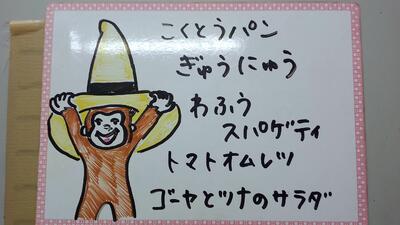 こくとうパン
ぎゅうにゅう
わふう
スパゲティ
トマトオムレツ
ゴーヤとツナのサラダ